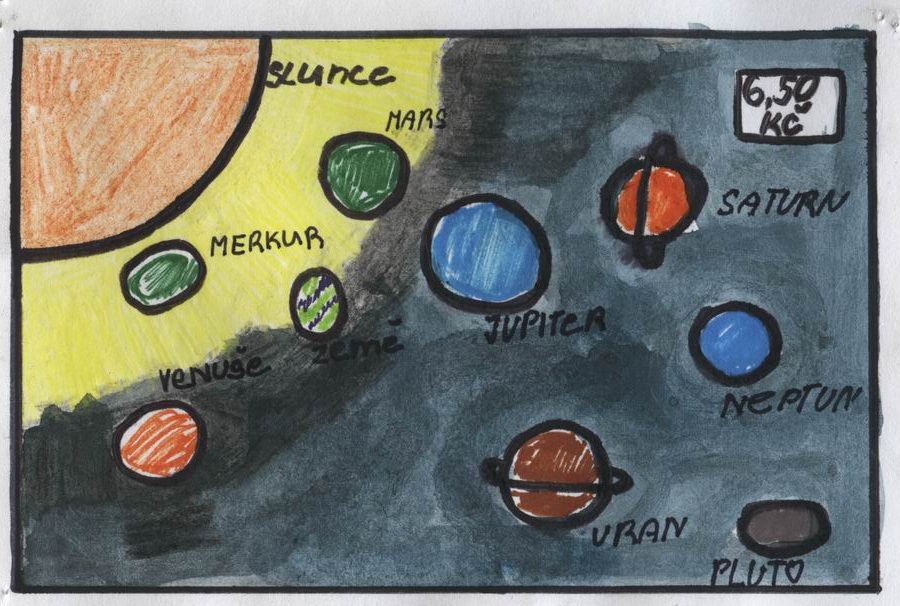 SLUNCE
MARS
6,50
KČ
SATURN
MERKUR
JUPITER
Země
VENUŠE
NEPTUN
URAN
PLUTO